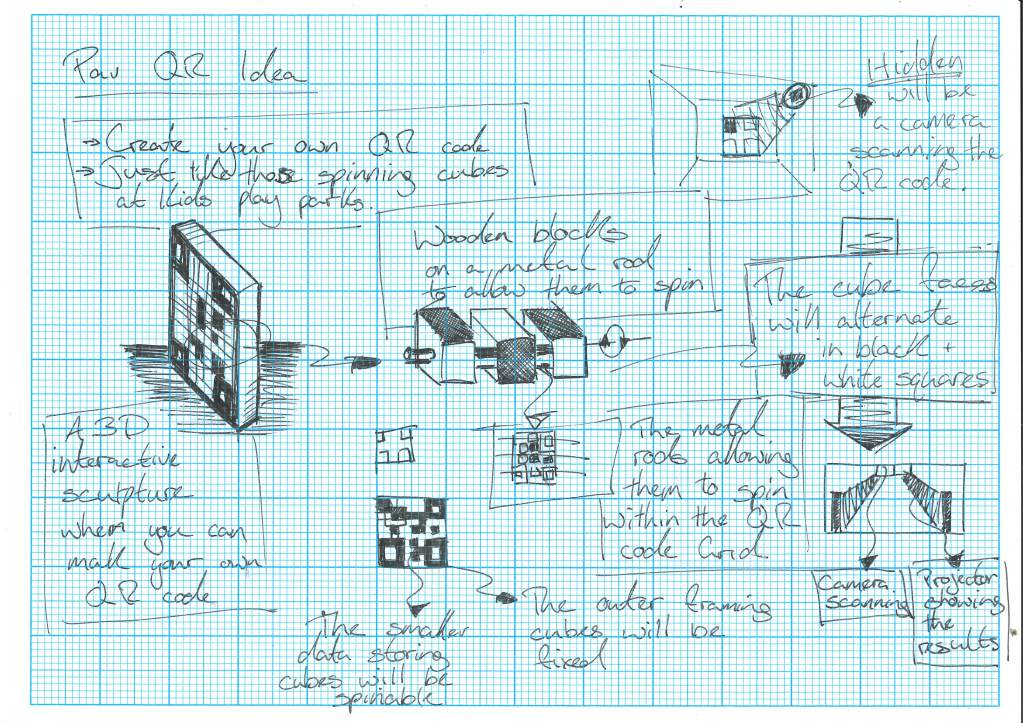 Pav QR Idea
→ Create your own QR code
→ Just like those spinning cubes
at kids play parks.
Hidden
will be
a camera
scanning the
QR code.
Wooden blocks
on a metal rod
to allow them to spin
The cube faces
will alternate
in black +
white squares
A 3D
interactive
sculpture
where you can
make your own
QR code
The metal
rods allowing
them to spin
within the QR
code Grid.
The smaller
data storing
cubes will be
spinable
The outer framing
cubes will be
fixed
Camera
scanning
Projector
showing
the
results